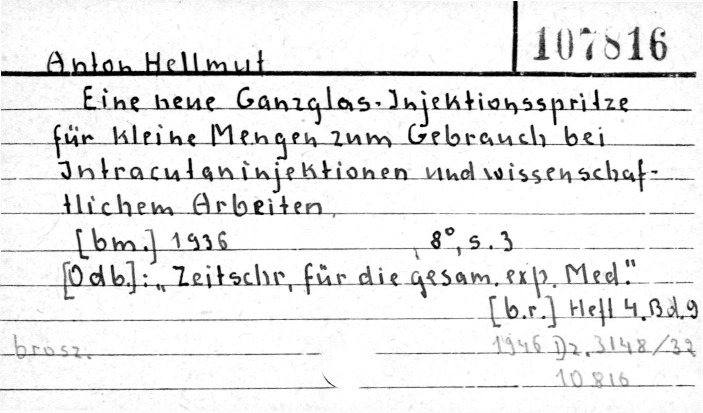 107816
Anton Hellmut
Eine neue Ganzglas-Injektionsspritze
für kleine Mengen zum Gebrauch bei
Intracutaninjektionen und wissenschaf-
tlichem Arbeiten.
[bm.] 1936 , 8°, s. 3
[Odb.]: „Zeitschr, für die gesam. exp. Med."
[b.r.] Heft 4. Bd. 9
brosz. 1946 Dz. 3148/32
10816